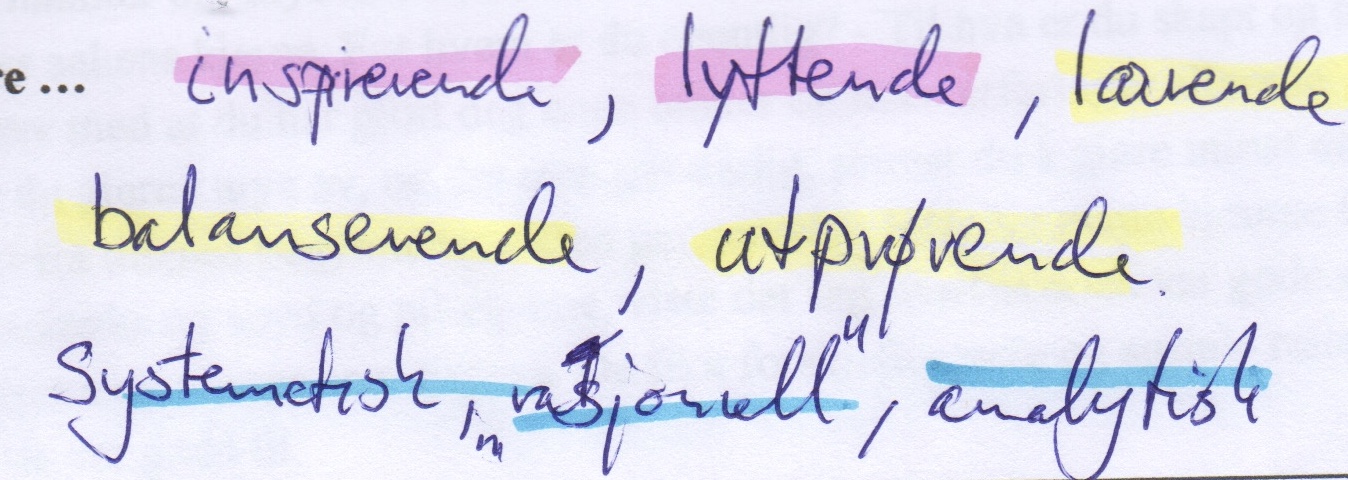 re ... inspirerende, lyttende, lærende
balanserende, utprøvende.
Systematisk, „rasjonell", analytisk